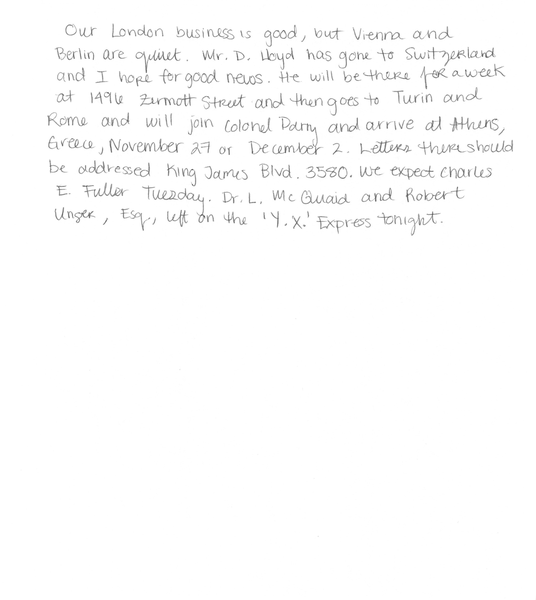 Our London business is good, but Vienna and
Berlin are quiuet. Mr. D. Lloyd has gone to Switzerland
and I hope for good news. He will be there for a week
at 1496 Zermott Street and then goes to Turin and
Rome and will join Colonel Parry and arrive at Athens,
Greece, November 27 or December 2. Letters there should
be addressed King James Blvd. 3580. We expect Charles
E. Fuller Tuesday. Dr. L. McQuaid and Robert
Unger, Esq., left on the 'Y.X.' Express tonight.